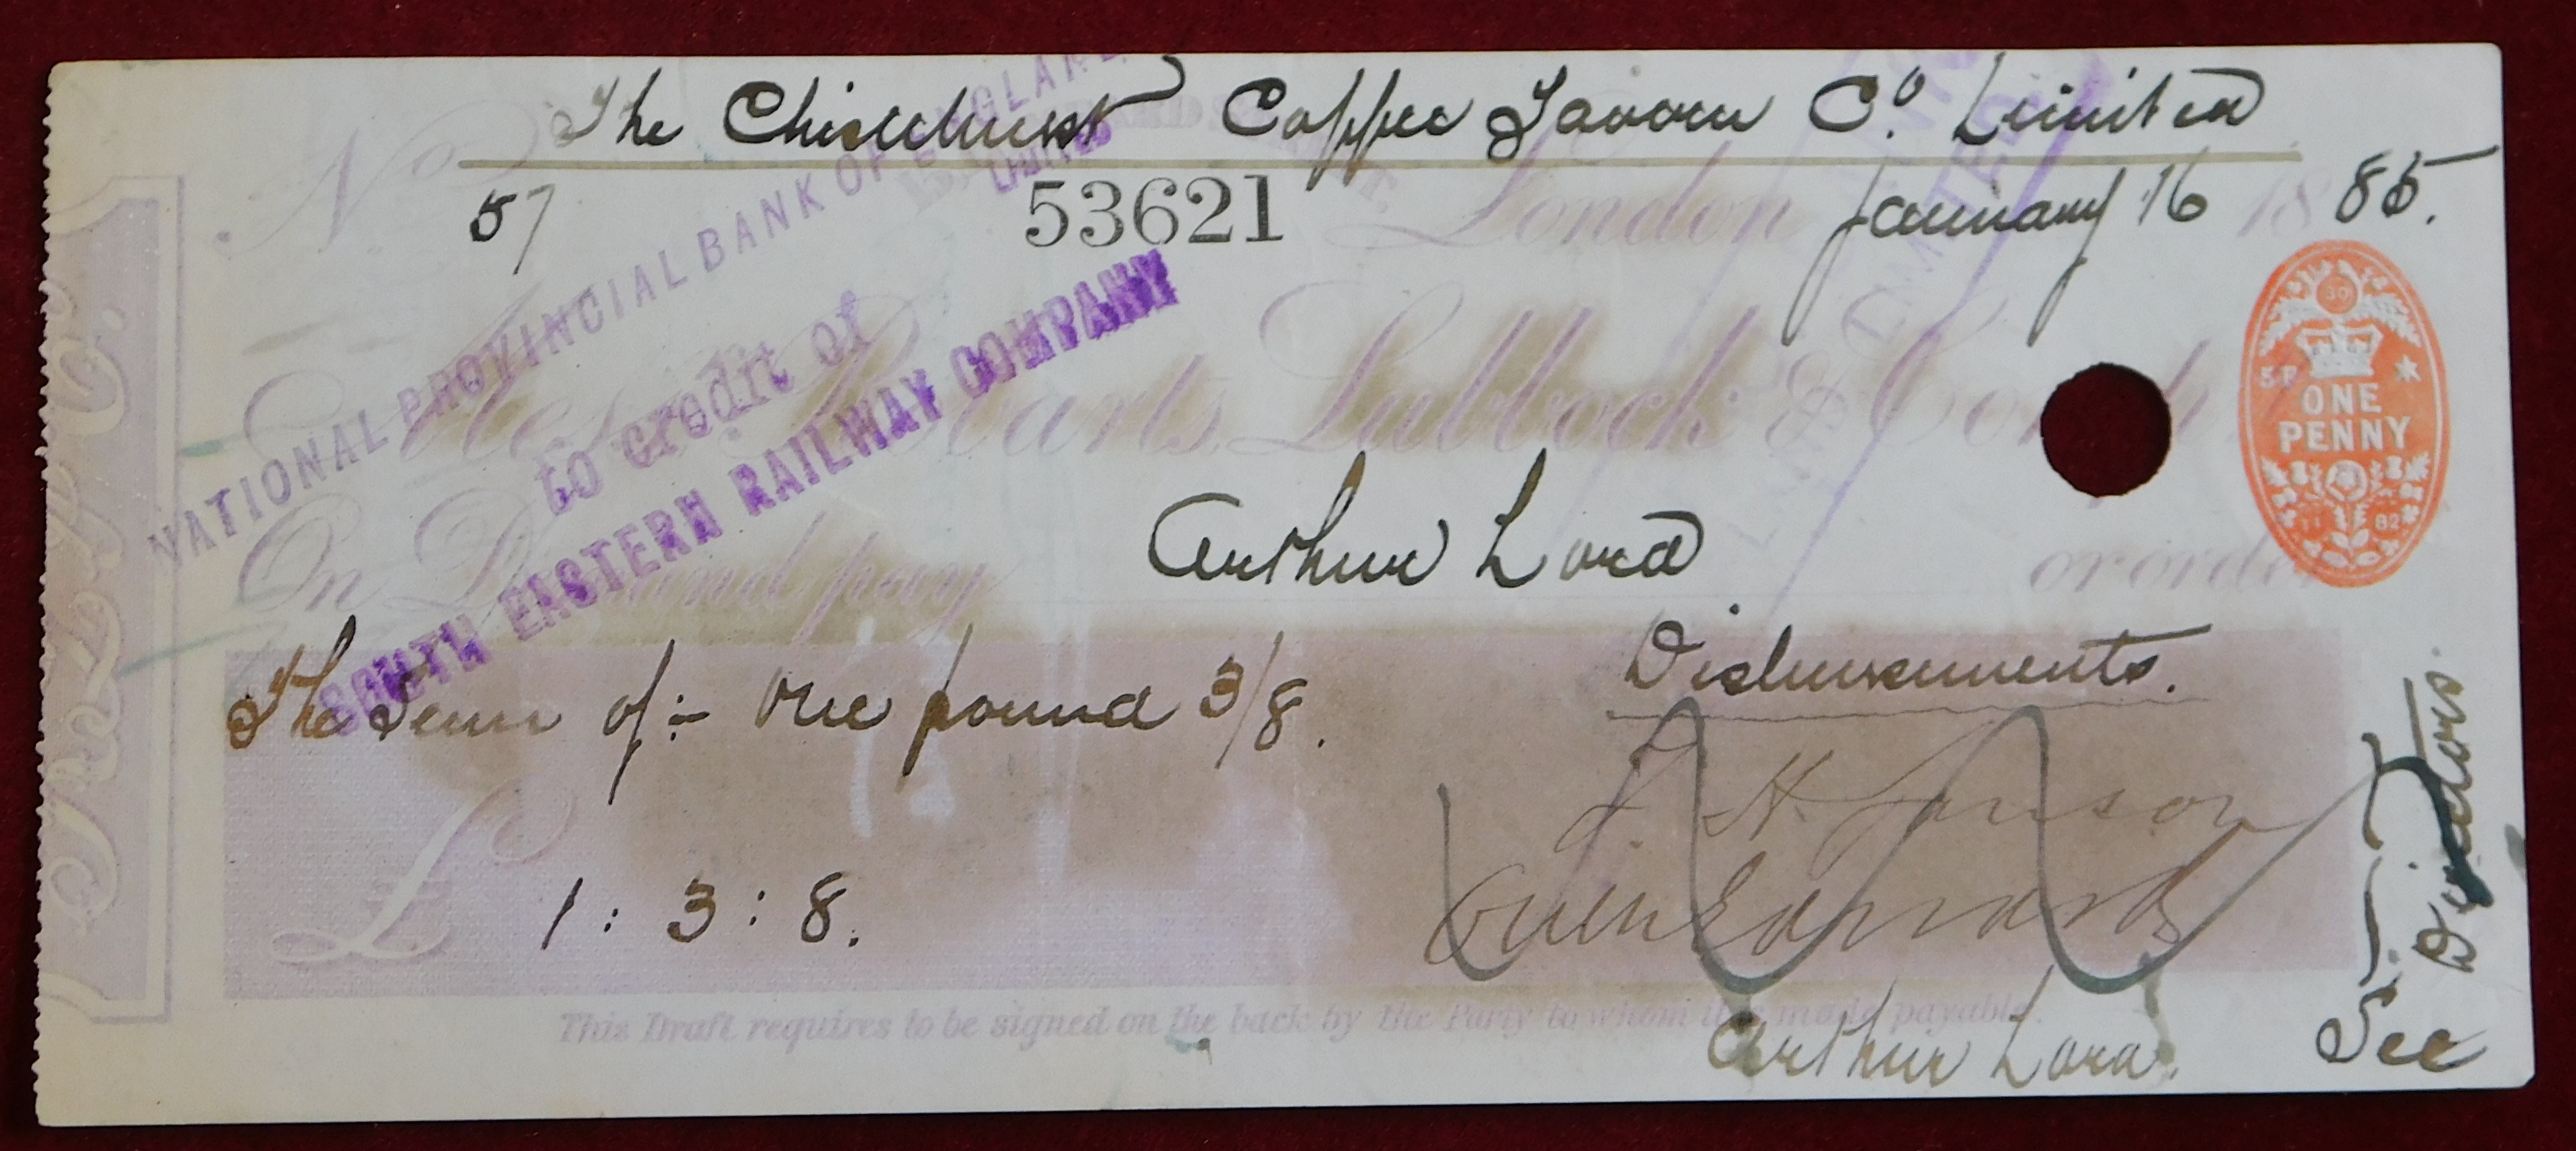 The Chislehurst Coffee Tavern Co. Limited
No 57 53621 London January 16 1885.
NATIONAL PROVINCIAL BANK OF ENGLAND
LIMITED
to credit of
SOUTH EASTERN RAILWAY COMPANY
Robarts, Lubbock & Co
ONE
PENNY
On Demand pay Arthur Lord or order
The Sum of :- One pound 3/8.
Disbursements.
£ 1 : 3 : 8.
Arthur Lord.
Sec
Directors.
This Draft requires to be signed on the back by the Party to whom it is made payable.